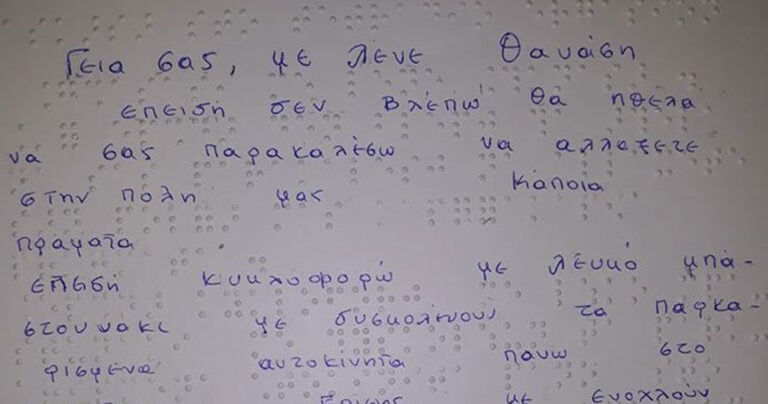 Γεια σας, με λένε Θανάση
επειδη δεν βλέπω θα ηθελα
να σας παρακαλέσω να αλλαξετε
στην πολη μας κάποια
πραματα
επειδη κυκλοφορώ με λευκό μπα-
στουνακι με δυσκολευουν τα παρκα-
ρισμενα αυτοκίνητα πανω στο
Επισης με ενοχλουν